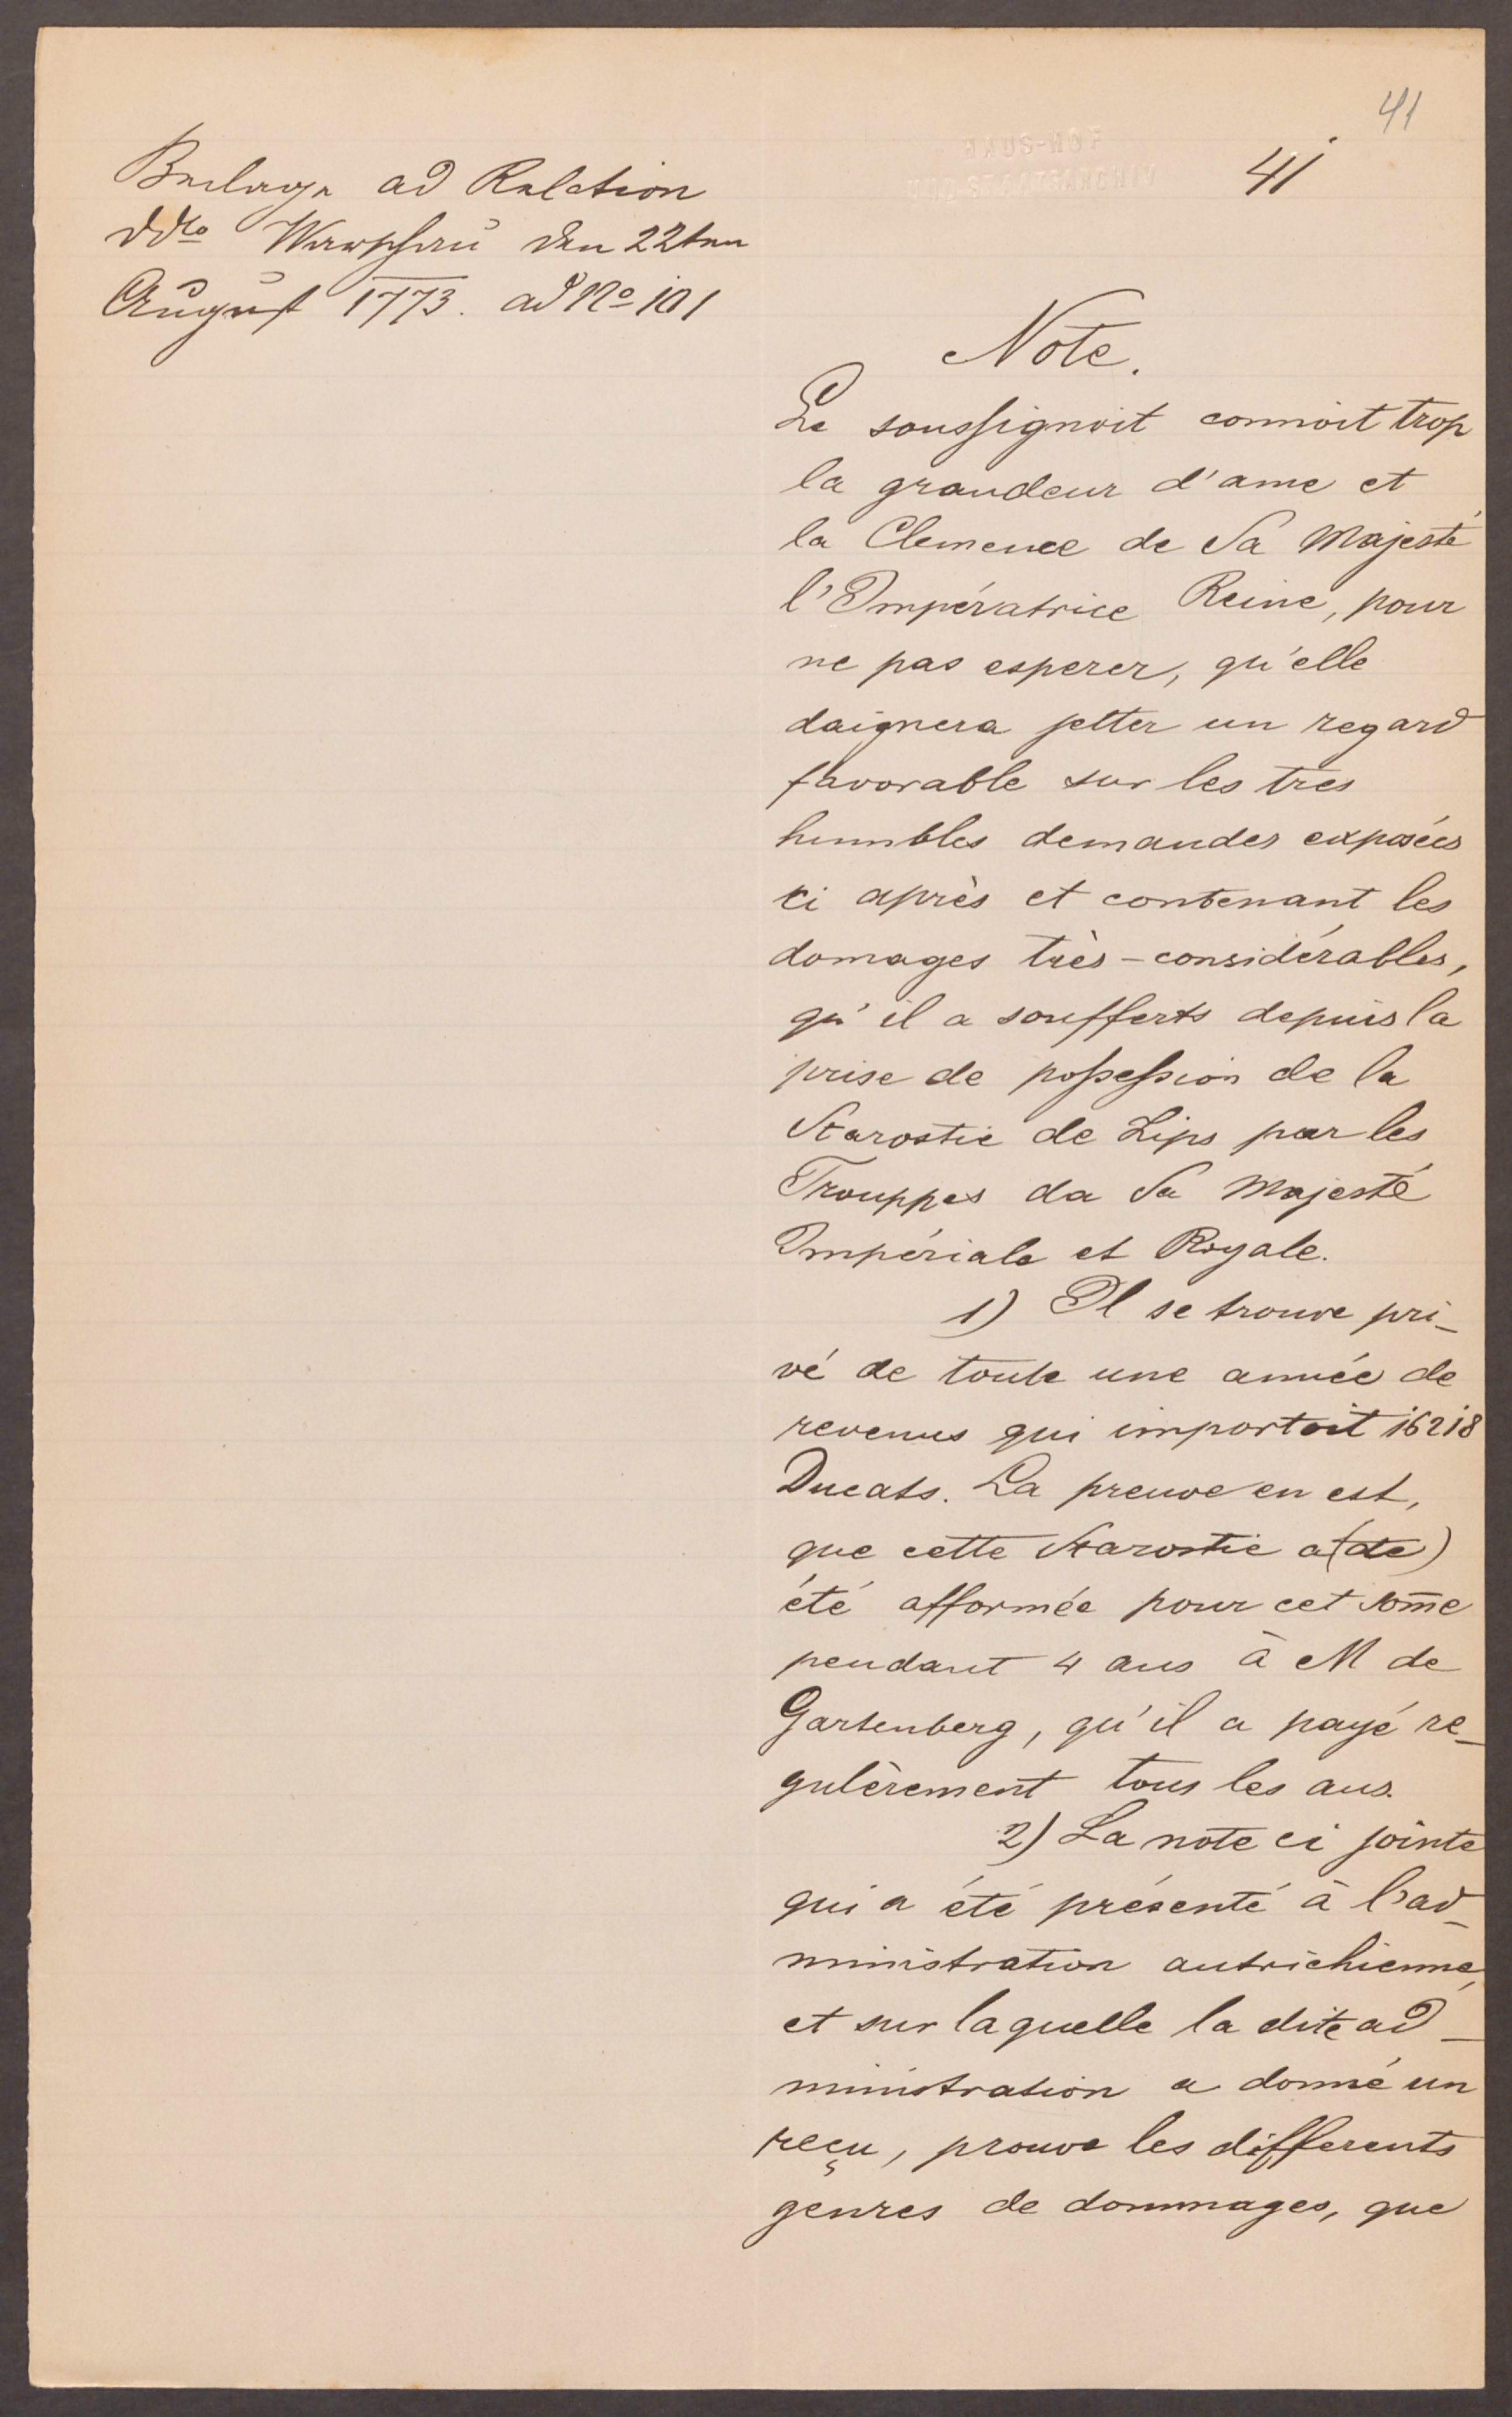 41
HAUS-HOF
UND STAATSARCHIV
41
Beilage ad Relation
ddto Warschau den 22ten
August 1773. ad No 101
Note.
Le soussignoit connoit trop
la grandeur d'ame et
la Clemence de Sa Majesté
l'Impératrice Reine, pour
ne pas esperer, qu'elle
daignera jetter un regard
favorable sur les tres
humbles demandes exposées
ci après et contenant les
domages très-considérables,
qu'il a soufferts depuis la
prise de possession de la
Starostie de Lips par les
Trouppes da Sa Majesté
Impériale et Royale.
1) Il se trouve pri-
vé de toute une année de
revenus qui importoit 16218
Ducats. La preuve en est,
que cette Starostie a (de)
été afformée pour cet some
pendant 4 ans à M de
Gartenberg, qu'il a payé re-
gulèrement tous les ans.
2) La note ci jointe
qui a été présenté à l'ad-
ministration autrichienne,
et sur laquelle la dite ad-
ministration a donné un
reçu, prouve les differents
genres de dommages, que